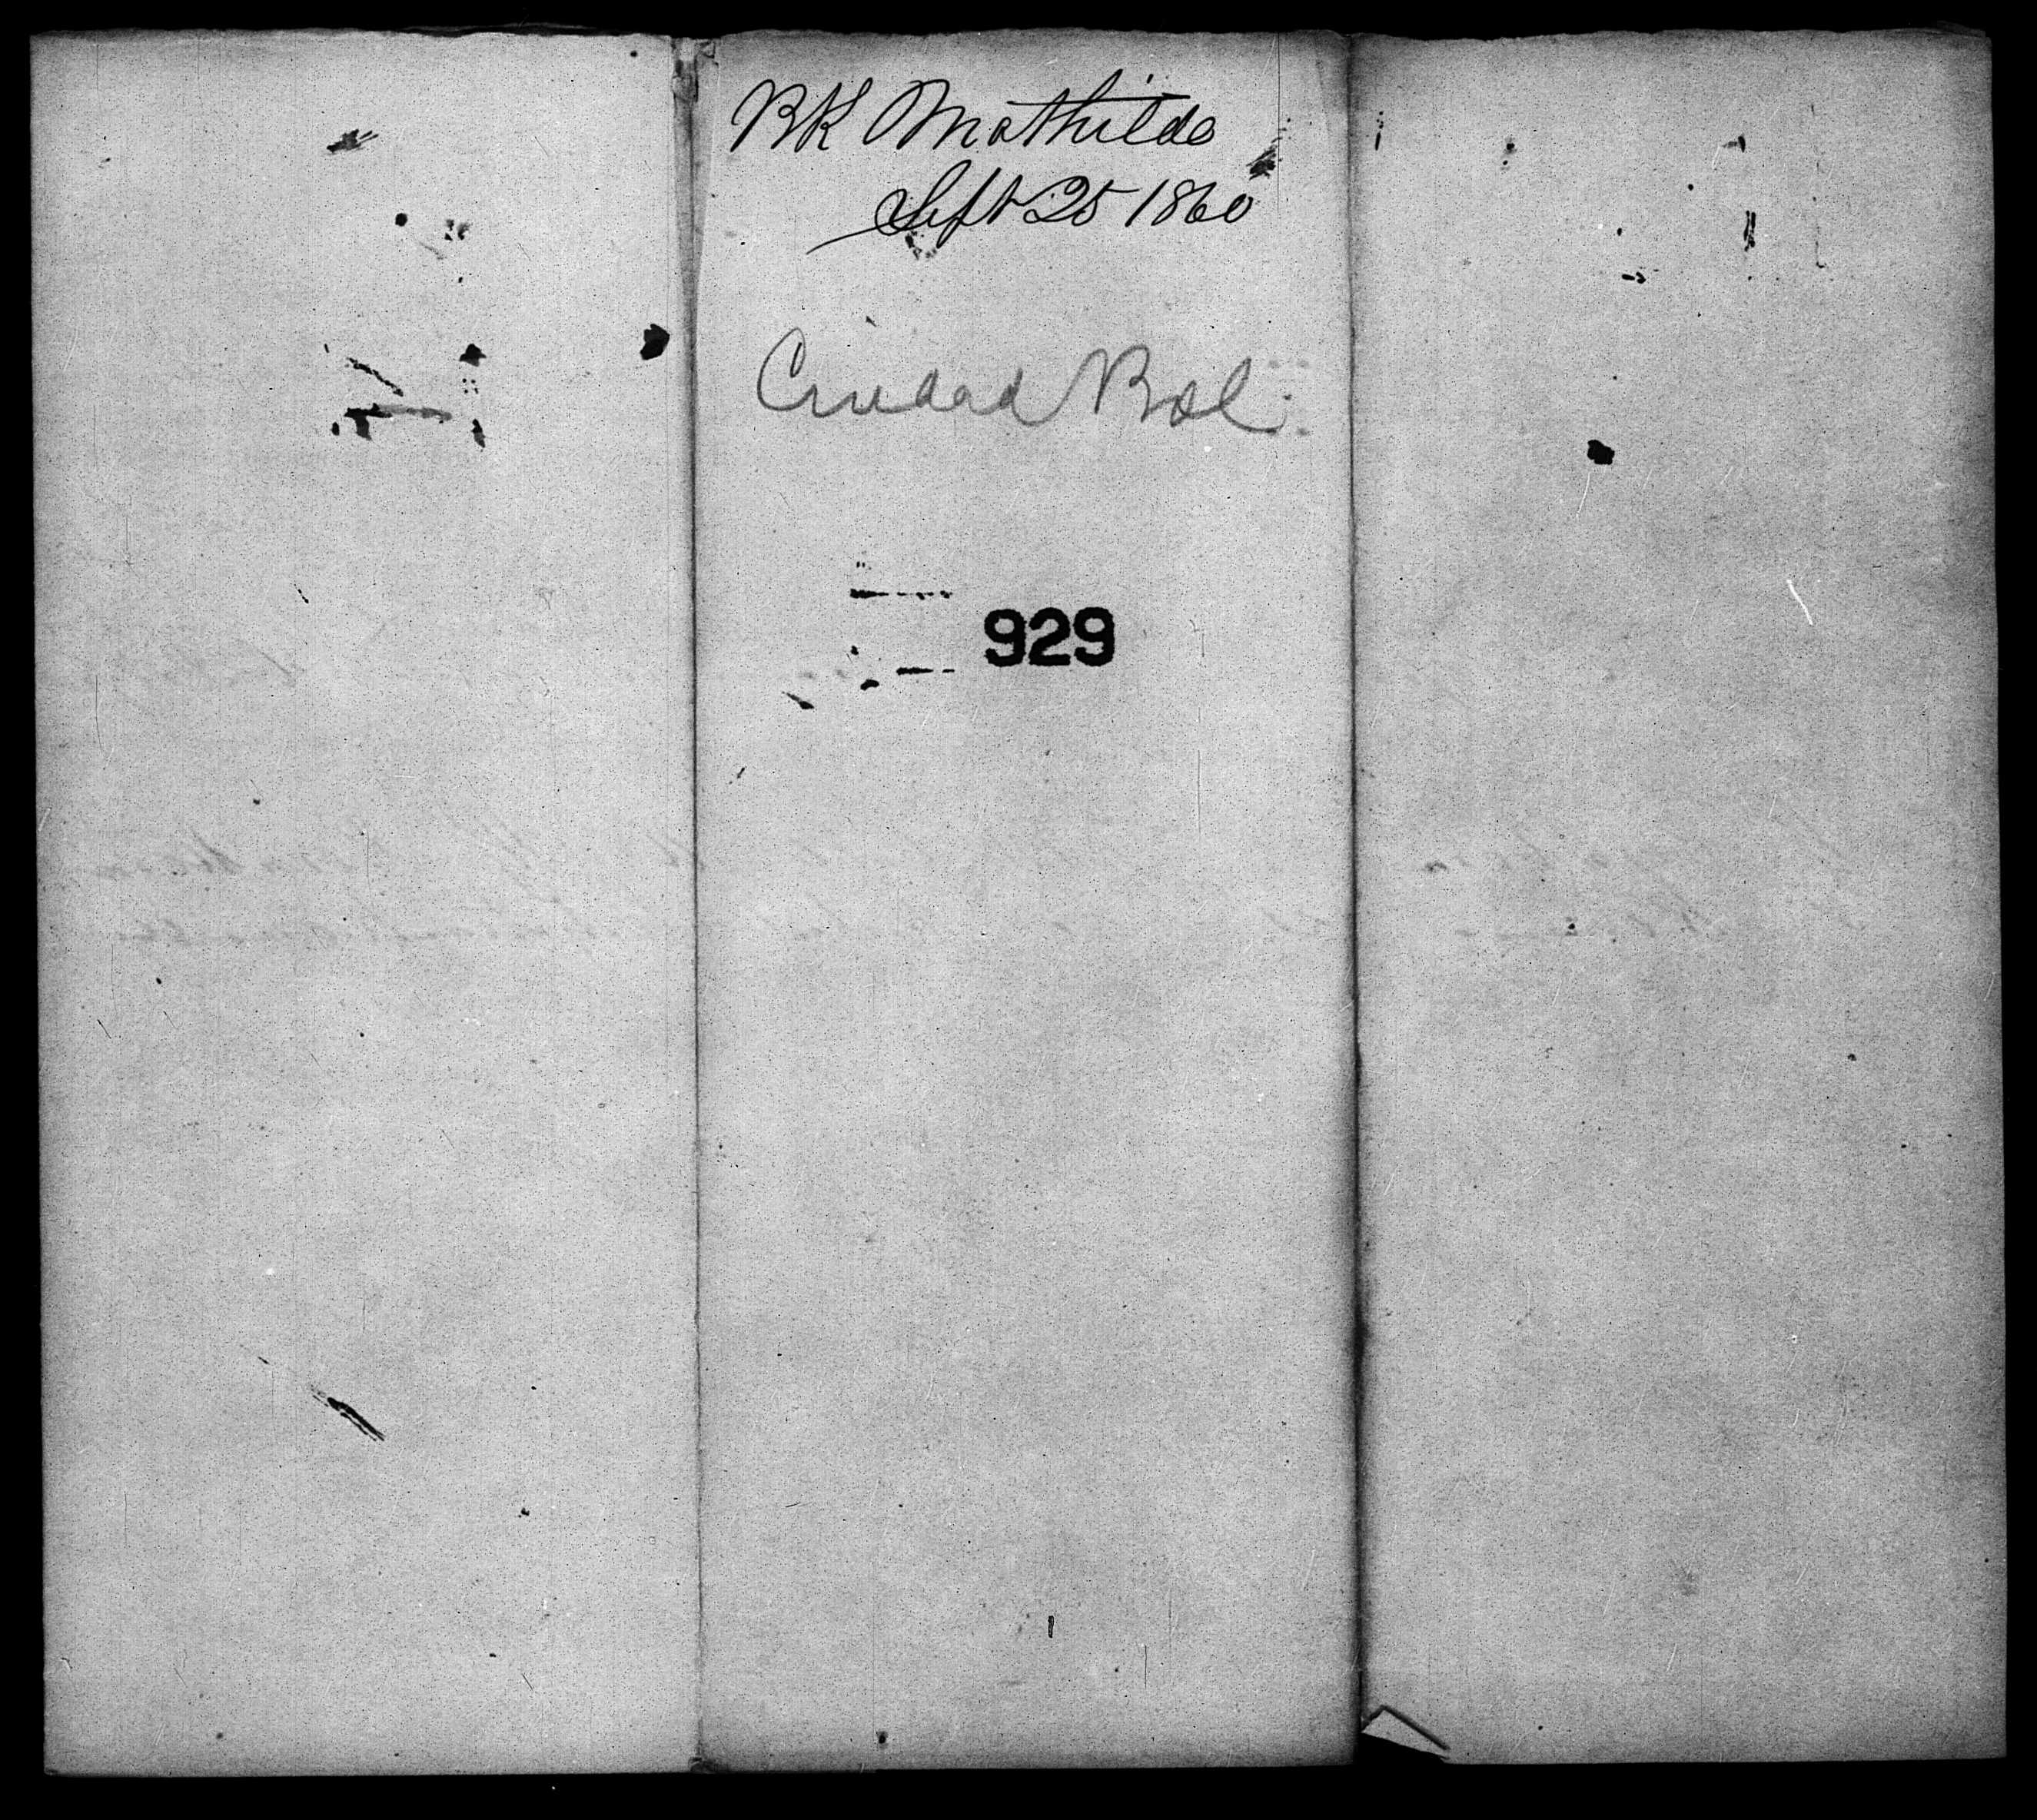 BK Mathilde
Sept 25 1860
Ciudad Bol.
929